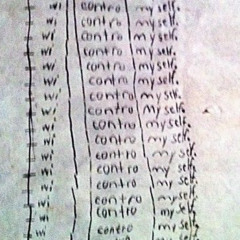 wi contro my self.
wi contro my self.
wi contro my self.
wi contro my self.
wi contro my self.
wi contro my self.
wi contro my self.
wi contro my self.
wi contro my self.
wi contro my self.
wi contro my self.
wi contro my self.
wi contro my self.
wi contro my self.
wi contro my self.
wi contro my self.